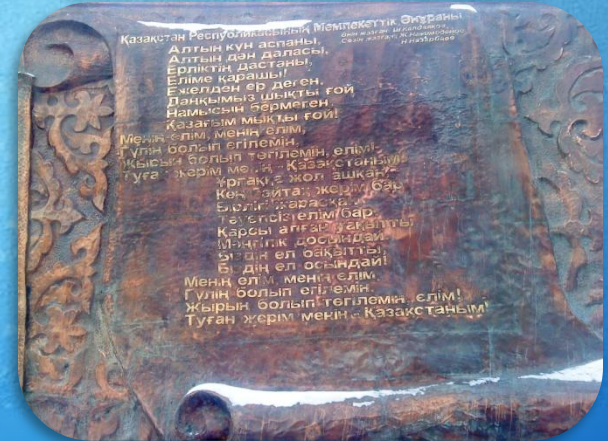 Қазақстан Республикасының Мемлекеттік Әнұраны
Әнін жазған: Ш.Қалдаяқов,
Сөзін жазған: Ж.Нәжімеденов,
Н.Назарбаев
Алтын күн аспаны,
Алтын дән даласы,
Ерліктің дастаны,
Еліме қарашы!
Ежелден ер деген,
Даңқымыз шықты ғой
Намысын бермеген
Қазағым мықты ғой!
Менің елім, менің елім,
Гүлің болып егілемін,
Жырың болып төгілемін, елім!
Туған жерім менің - Қазақстаным!
Ұрпаққа жол ашқан,
Кең байтақ жерім бар
Бірлігі жарасқан
Тәуелсіз елім бар
Қарсы алған уақытты
Мәңгілік досындай
Біздің ел бақытты,
Біздің ел осындай!
Менің елім, менің елім
Гүлің болып егілемін,
Жырың болып төгілемін, елім!
Туған жерім менің - Қазақстаным!